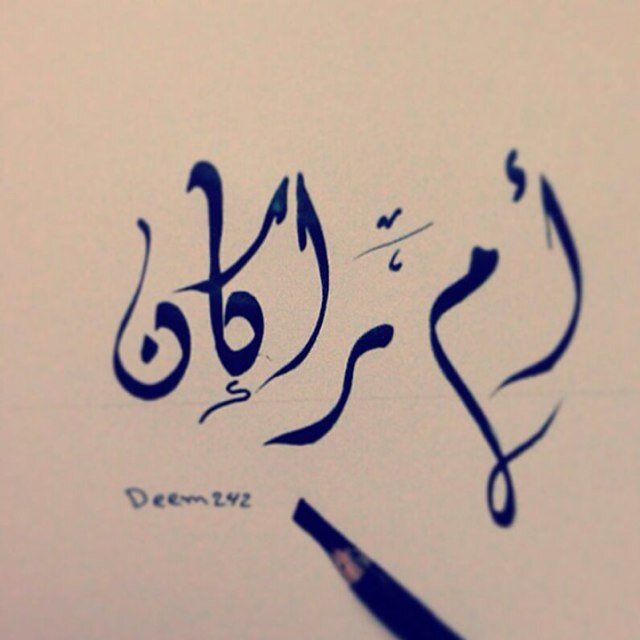 أم راكان
Deem242